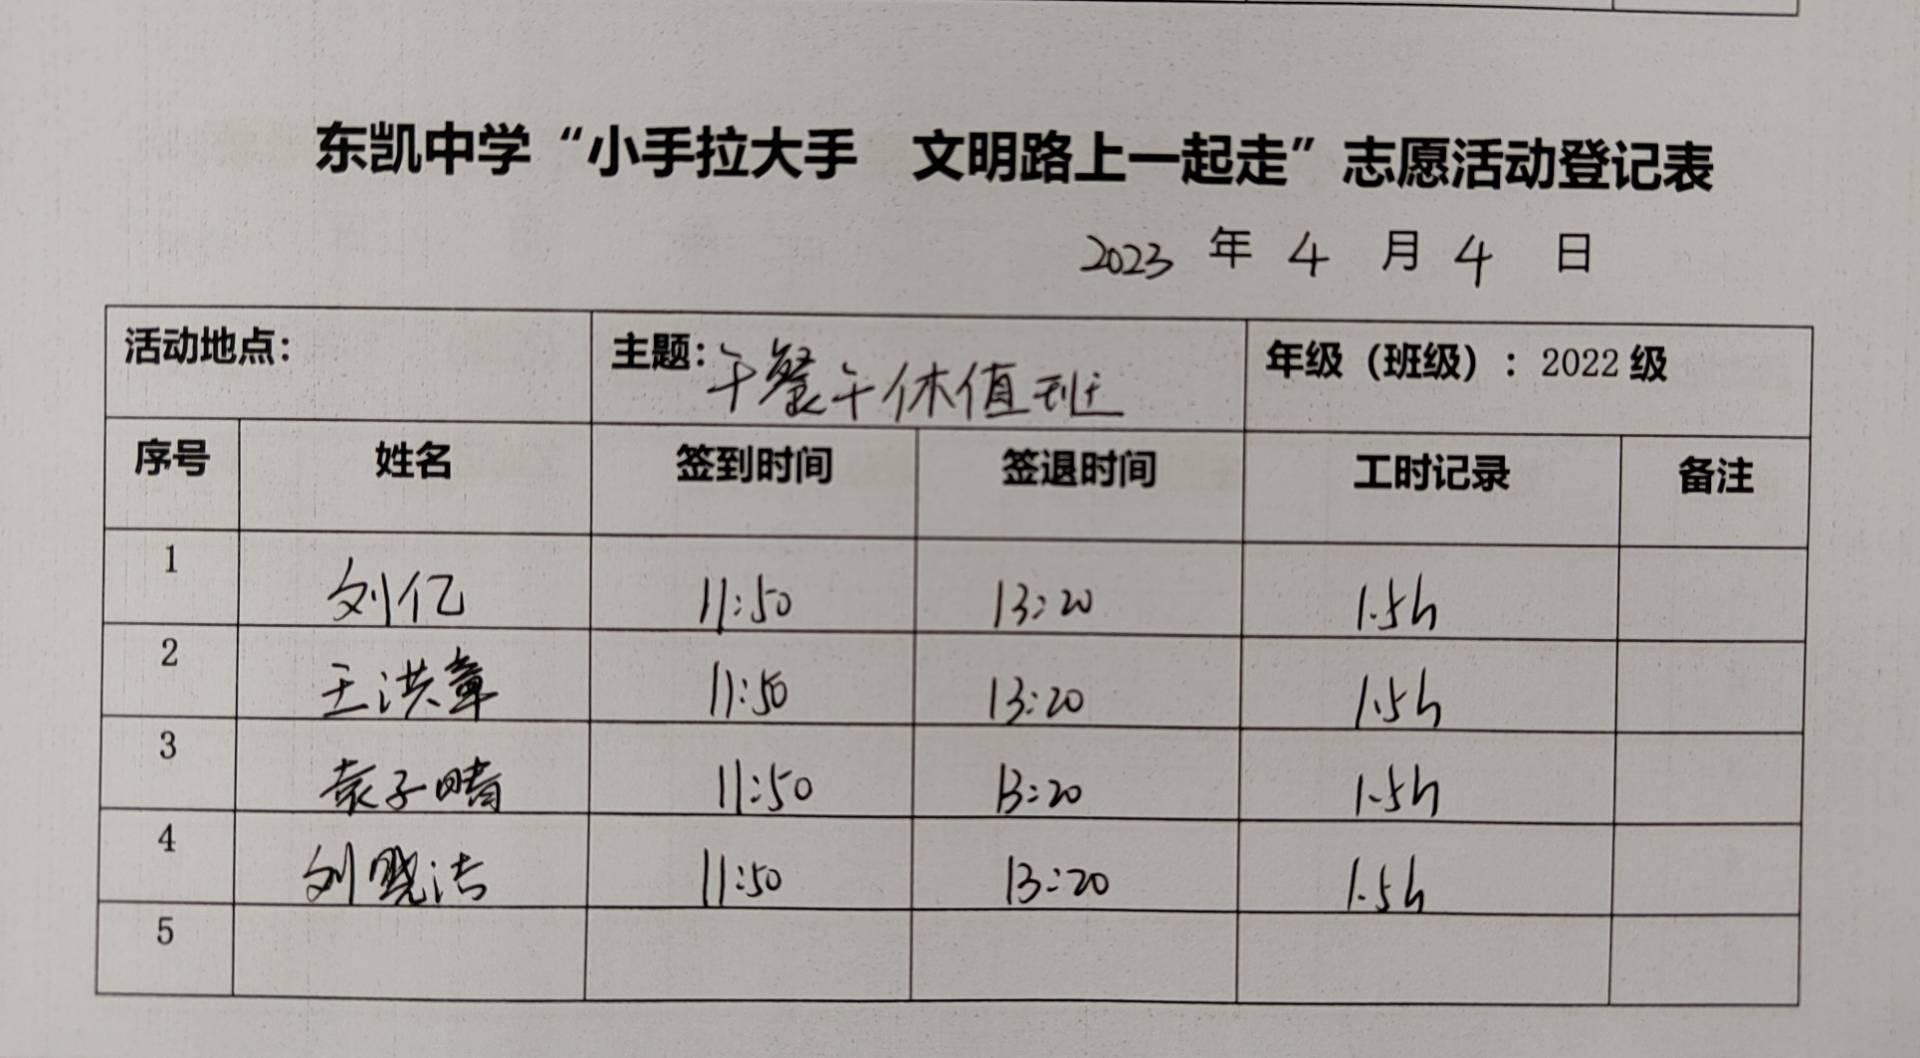 东凯中学“小手拉大手 文明路上一起走”志愿活动登记表
2023 年 4 月 4 日
活动地点： 主题：午餐午休值班 年级（班级）：2022级
序号 姓名 签到时间 签退时间 工时记录 备注
1 刘亿 11:50 13:20 1.5h
2 王洪章 11:50 13:20 1.5h
3 袁子晴 11:50 13:20 1.5h
4 刘晓洁 11:50 13:20 1.5h
5